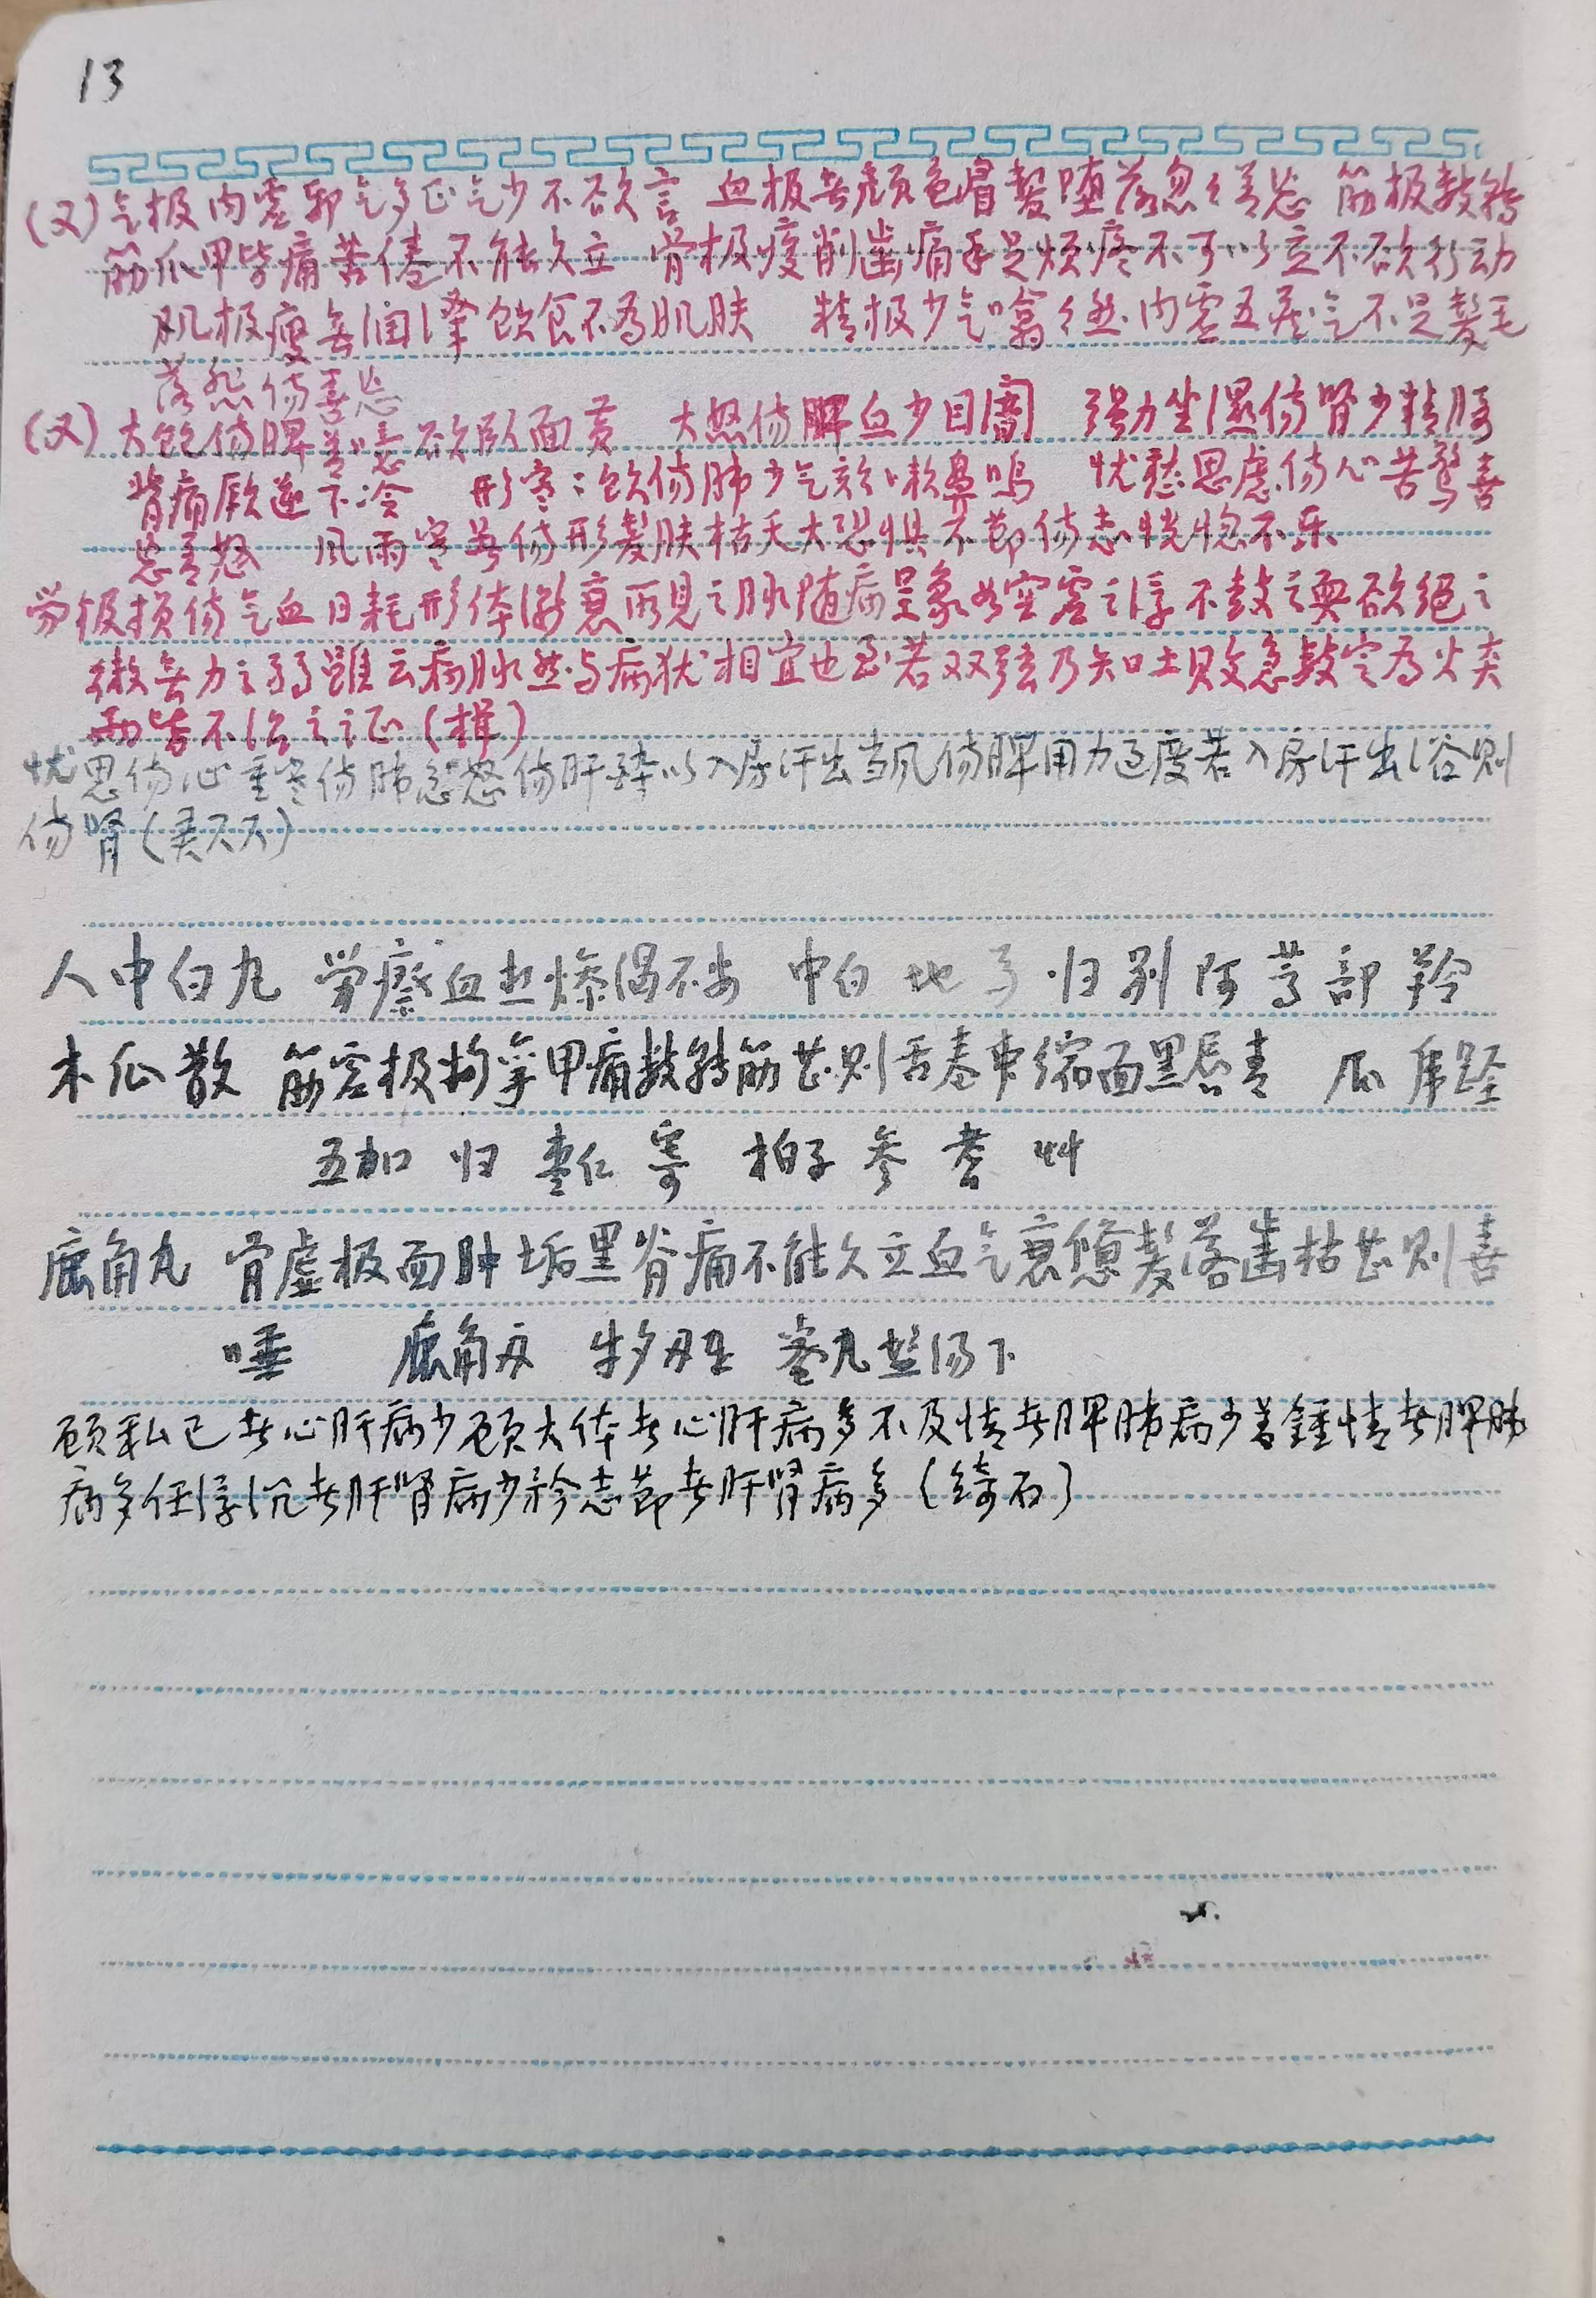 13
(又)气极内虚邪气多正气少不欲言 血极无颜色眉髮堕落忽々善忘 筋极数转
筋爪甲皆痛苦倦不能久立 骨极痠削齿痛手足烦疼不可以立不欲行动
肌极瘦无润泽饮食不为肌肤 精极少气噏々然内虚五脏气不足髮毛
落悲伤善忘
(又)大饱伤脾善噫欲卧面黄 大怒伤肝血少目闇 强力坐湿伤肾少精腰
背痛厥逆下冷 形寒寒饮伤肺少气欬嗽鼻鸣 忧愁思虑伤心苦驚喜
忘善怒 风雨寒暑伤形髮肤枯夭大恐惧不節伤志恍惚不乐
劳极损伤气血日耗形体渐衰所見之脉随病呈象如空虚之浮不鼓之耎欲絕之
微无力之弱雖云病脉然与病状相宜也至若双弦乃知土败急数定为火炎
而皆不治之证(楫)
忧思伤心重寒伤肺忿怒伤肝醉以入房汗出当风伤脾用力过度若入房汗出浴则
伤肾(类又又)
人中白丸 劳瘵血虚燥渴不安 中白 地 归 别 阿 部 羚
木瓜散 筋虚极拘挛甲痛数转筋甚则舌卷卵缩面黑唇青 瓜 虎踁
五加 归 枣仁 寄 柏子 参 耆 艸
鹿角丸 骨虚极面肿垢黑脊痛不能久立血气衰惫髮落齒枯甚则喜
唾 鹿角 牛夕 蜜丸盐汤下
顾私己者心肝病少顾大体者心肝病多不及情者脾肺病少善鍾情者脾肺
病多任浮沉者肝肾病少矜志節者肝肾病多(绮石)